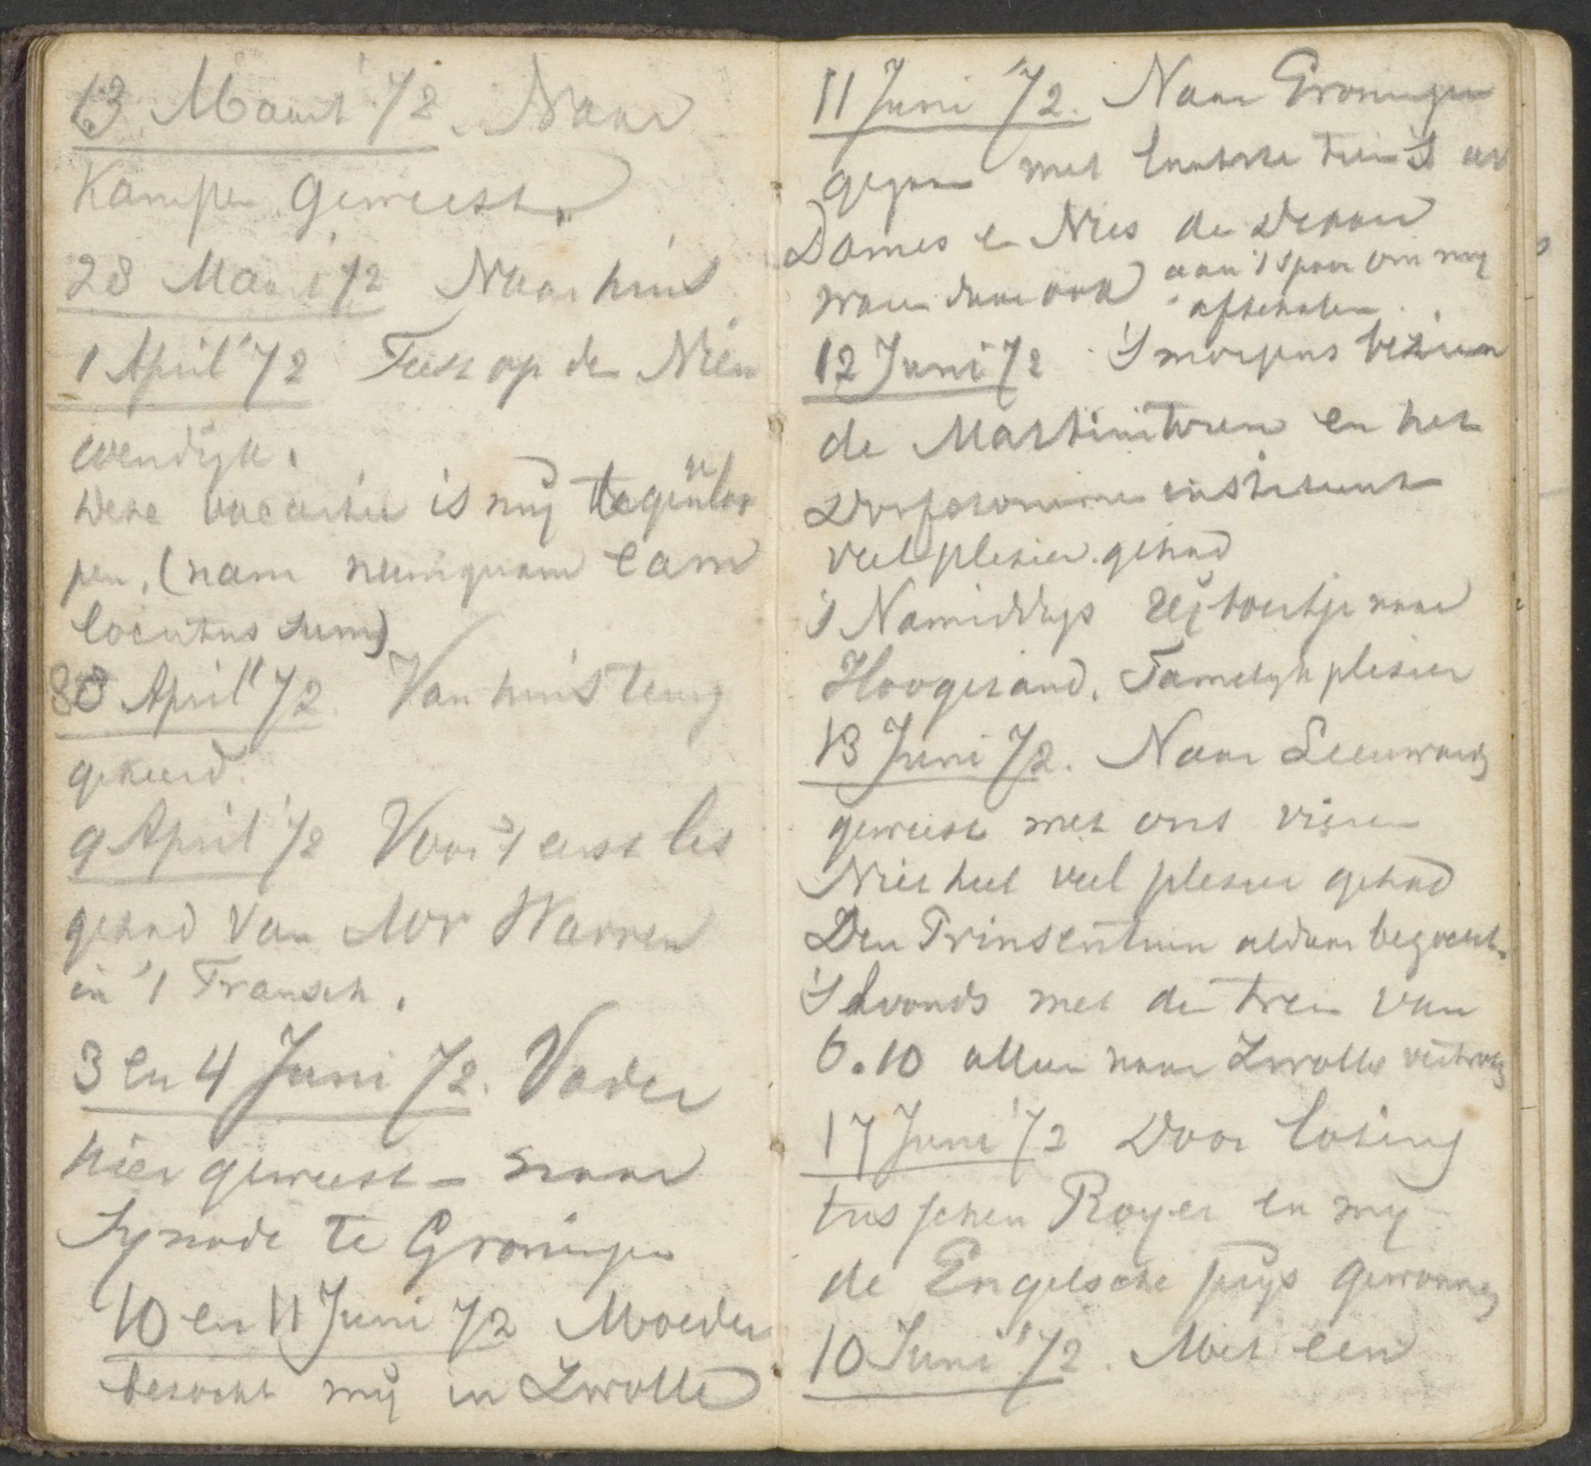 13 Maart '72. Naar
Kampen geweest.
28 Maart '72 Naar huis
1 April '72 Feest op de Nieu
wendijk.
Deze vacantie is mij tegengelo
pen. (nam numquam eam
locutus sum)
8 April '72. Van huis terug
gekeerd.
9 April '72 Voor 't eerst les
gehad van Mr Warren
in 't Fransch.
3 en 4 Juni '72. Vader
hier geweest - naar
Synode te Groningen
10 en 11 Juni '72 Moeder
bezocht mij in Zwolle
11 Juni '72. Naar Groningen
gegaan met laatste trein 's av
Dames en Nies de
waren daar ook aan 't spoor om mij
aftehalen.
12 Juni '72 's morgens bezien
de Martinitoren en het
Doofstommen instituut
veel plezier gehad
's Namiddags Rijtoertje naar
Hoogezand. Tamelijk plezier
13 Juni '72. Naar Leeuward
geweest met ons vieren
Niet heel veel plezier gehad
Den Prinsentuin aldaar bezocht.
's Avonds met de trein van
6.10 alleen naar Zwolle vertrok
17 Juni '72 Door loting
tusschen Royer en mij
de Engelsche prijs gewonnen
10 Juni '72. Met een